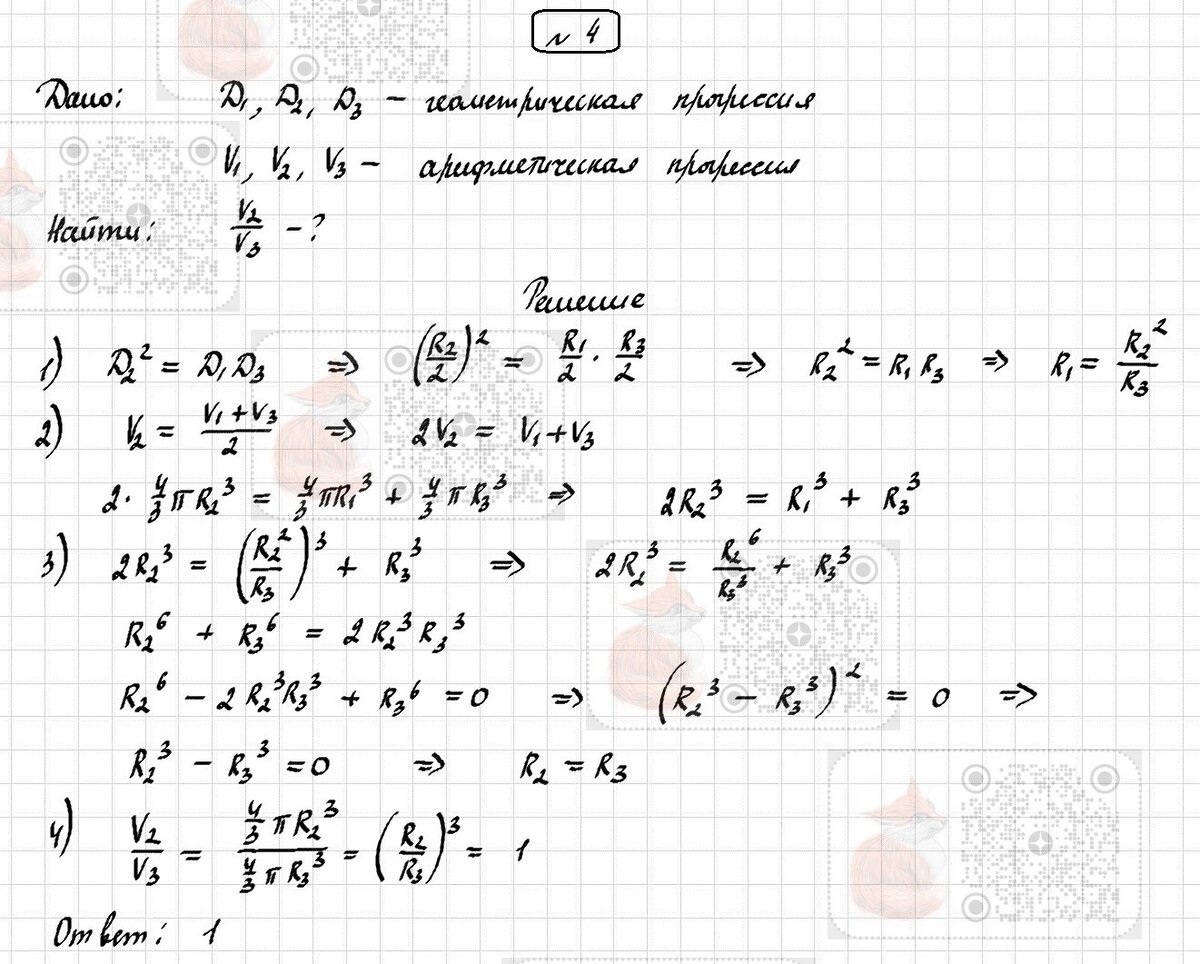 № 4
Дано: D₁, D₂, D₃ – геометрическая прогрессия
V₁, V₂, V₃ – арифметическая прогрессия
Найти: V₂/V₃ – ?
Решение
1) D₂² = D₁D₃ => (R₂/2)² = R₁/2 · R₃/2 => R₂² = R₁R₃ => R₁ = R₂²/R₃
2) V₂ = (V₁+V₃)/2 => 2V₂ = V₁+V₃
2 · 4/3 πR₂³ = 4/3 πR₁³ + 4/3 πR₃³ => 2R₂³ = R₁³ + R₃³
3) 2R₂³ = (R₂²/R₃)³ + R₃³ => 2R₂³ = R₂⁶/R₃³ + R₃³
R₂⁶ + R₃⁶ = 2R₂³R₃³
R₂⁶ – 2R₂³R₃³ + R₃⁶ = 0 => (R₂³ – R₃³)² = 0 =>
R₂³ – R₃³ = 0 => R₂ = R₃
4) V₂/V₃ = (4/3 πR₂³)/(4/3 πR₃³) = (R₂/R₃)³ = 1
Ответ: 1